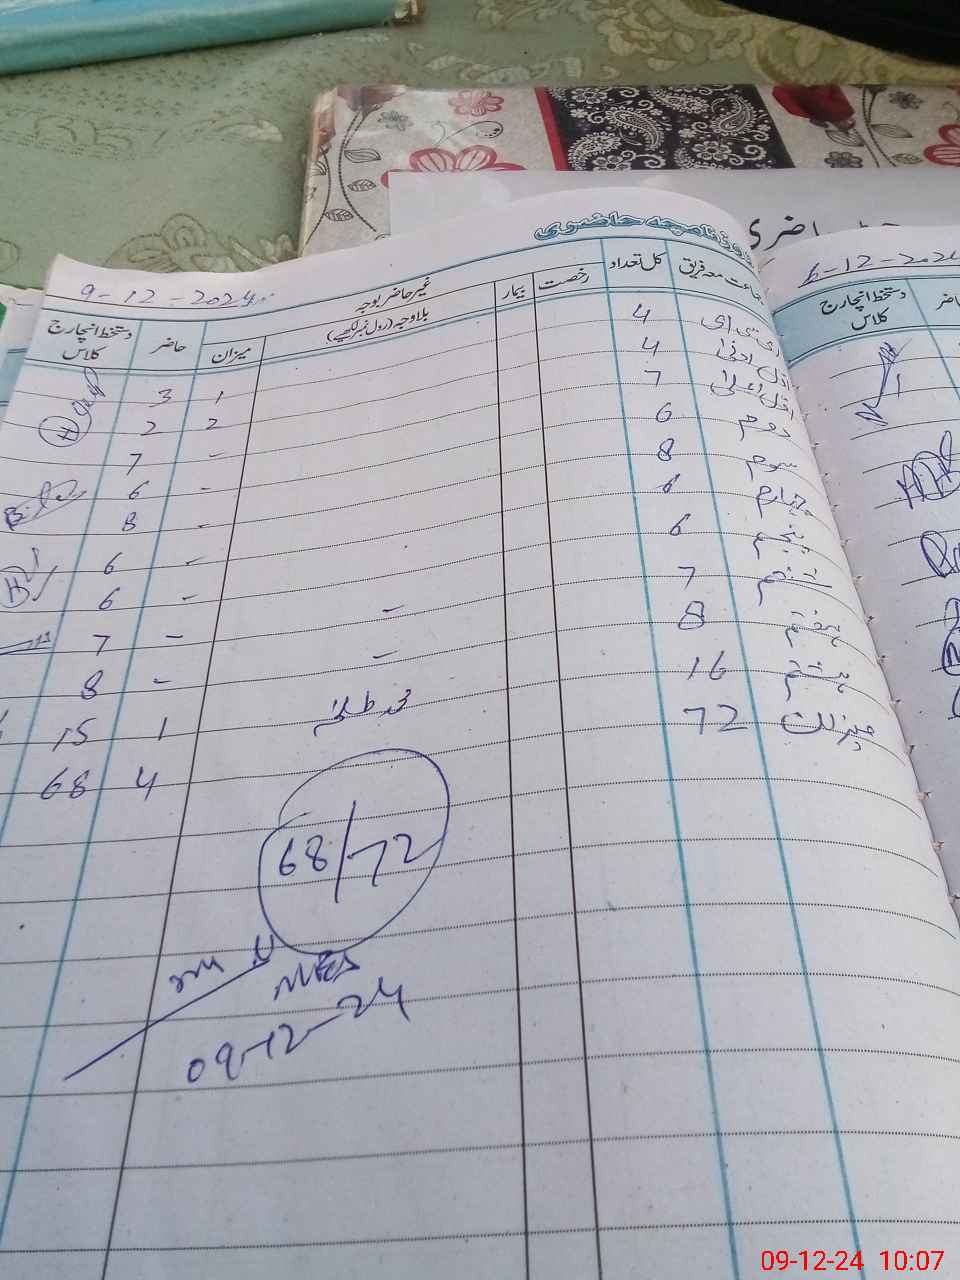 روزنامچہ حاضری
حاضری
9-12-2024
6-12-2024
جماعت معہ فریق کل تعداد رخصت بیمار غیر حاضر بوجہ بلاوجہ (رول نمبر لکھیے) میزان حاضر دستخط انچارج کلاس
دستخط انچارج کلاس
ای سی ای 4 1 3
اول ادنیٰ 4 2 2
اول اعلیٰ 7 - 7
دوم 6 - 6
سوم 8 - 8
چہارم 6 - 6
پنجم 6 - 6
ششم 7 - - 7
ہفتم 8 - - 8
ہشتم 16 1 15
میزان 72 4 68
68/72
09-12-24
09-12-24 10:07